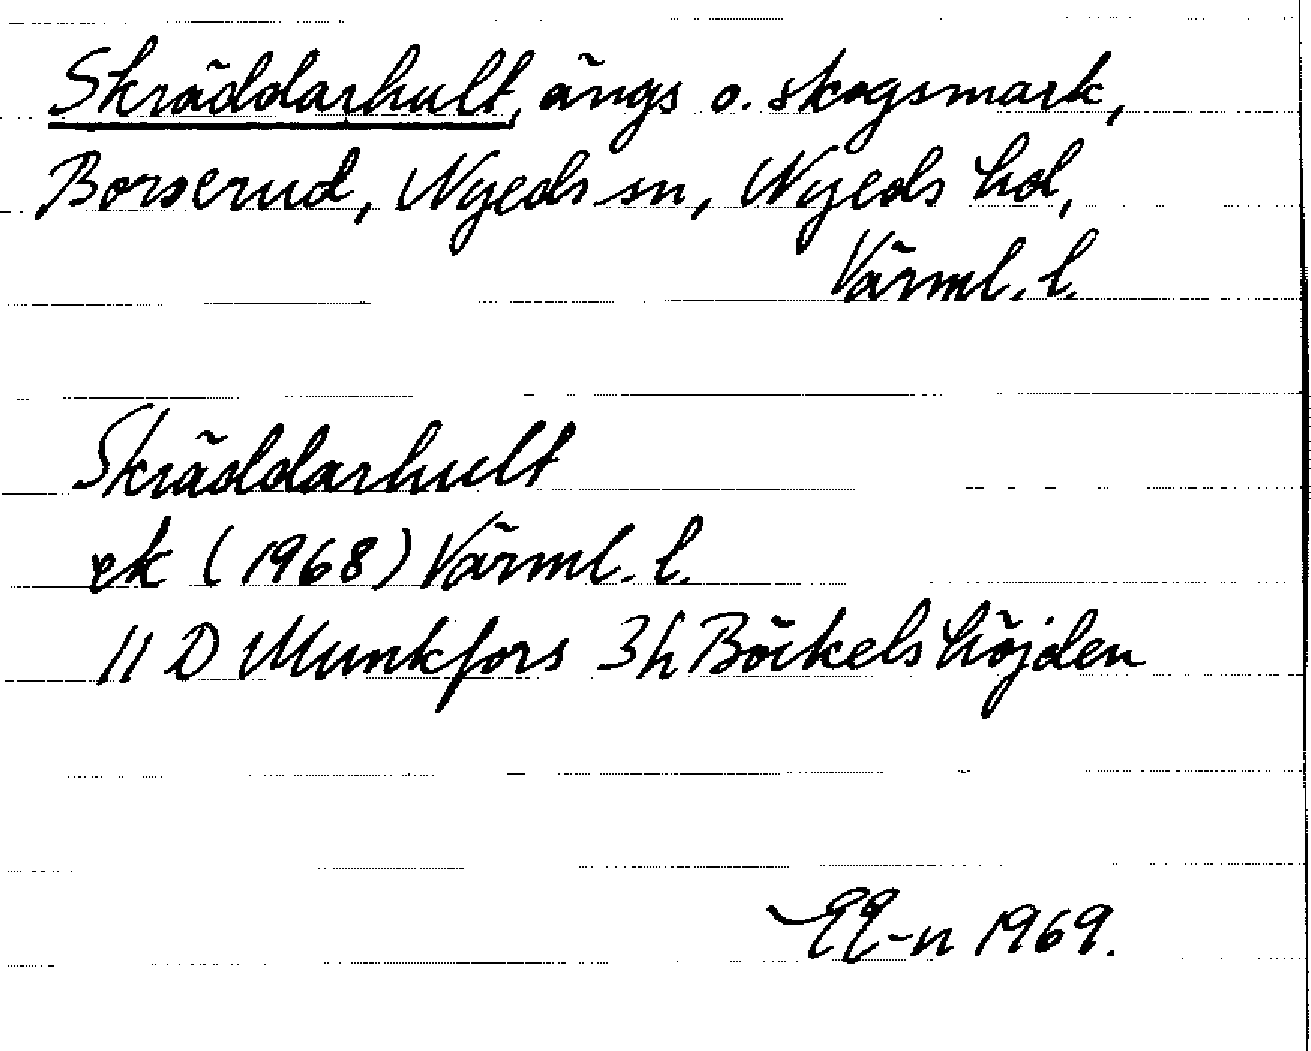 Skräddarhult, ängs o. skogsmark,
Borserud, Nyeds sn, Nyeds hd,
Värml. l.
Skräddarhult
ek (1968) Värml. l.
11 D Munkfors 3h Böckelshöjden
1969.